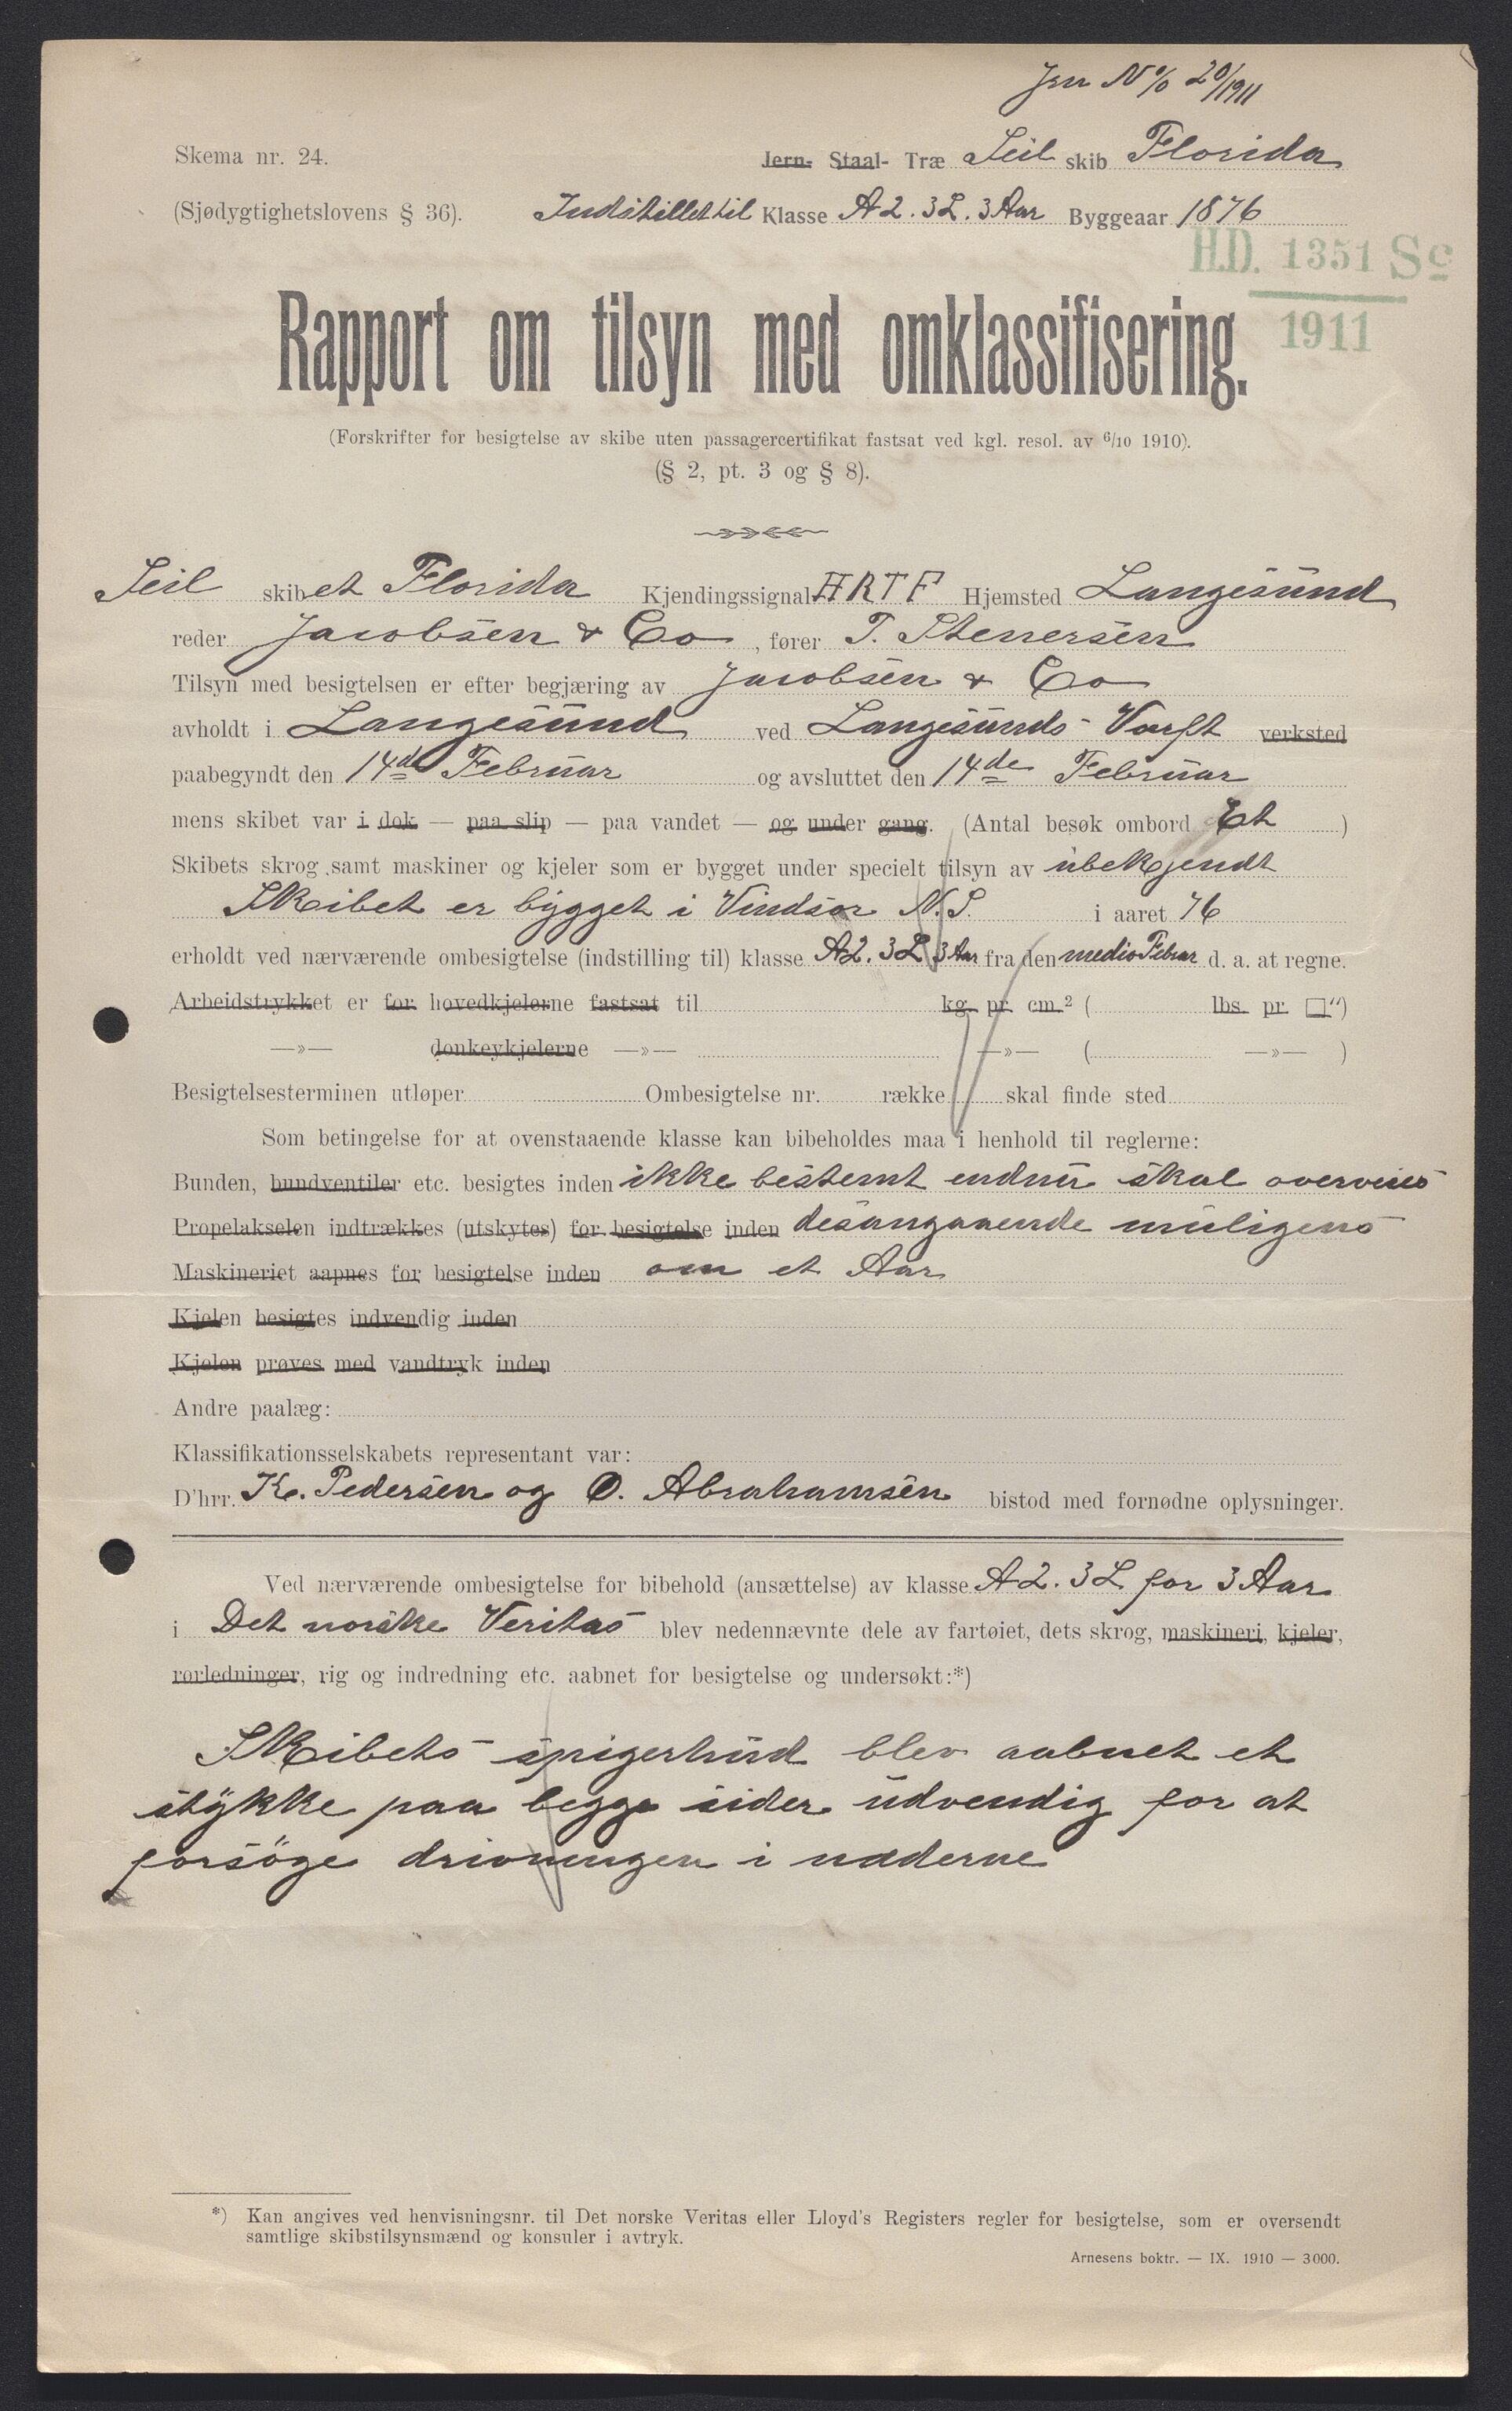 Jrn No 20/1911
Skema nr. 24.
Jern- Staal- Træ Seil skib Florida
(Sjødygtighetslovens § 36).
Indstillet til Klasse A2. 3L. 3 Aar Byggeaar 1876
H.D. 1351 Sc
1911
Rapport om tilsyn med omklassifisering.
(Forskrifter for besigtelse av skibe uten passagercertifikat fastsat ved kgl. resol. av 6/10 1910).
(§ 2, pt. 3 og § 8).
Seil skibet Florida Kjendingssignal HRTF Hjemsted Langesund
reder Jacobsen & Co, fører T. Stenersen
Tilsyn med besigtelsen er efter begjæring av Jacobsen & Co
avholdt i Langesund ved Langesunds Varft verksted
paabegyndt den 14de Februar og avsluttet den 14de Februar
mens skibet var i dok — paa slip — paa vandet — og under gang. (Antal besøk ombord Et )
Skibets skrog samt maskiner og kjeler som er bygget under specielt tilsyn av ubekjendt
Skibet er bygget i Vindsor N.S. i aaret 76
erholdt ved nærværende ombesigtelse (indstilling til) klasse A2. 3L 3 Aar fra den medio Febuar d. a. at regne.
Arbeidstrykket er for hovedkjelerne fastsat til kg. pr. cm.² ( lbs. pr. □")
—»— donkeykjelerne —»— —»— ( —»— )
Besigtelsesterminen utløper Ombesigtelse nr. række skal finde sted
Som betingelse for at ovenstaaende klasse kan bibeholdes maa i henhold til reglerne:
Bunden, bundventiler etc. besigtes inden ikke bestemt endnu skal overveies
Propelakselen indtrækkes (utskytes) for besigtelse inden desangaaende muligens
Maskineriet aapnes for besigtelse inden om et Aar
Kjelen besigtes indvendig inden
Kjelen prøves med vandtryk inden
Andre paalæg:
Klassifikationsselskabets representant var:
D'hrr. K. Pedersen og O. Abrahamsen bistod med fornødne oplysninger.
Ved nærværende ombesigtelse for bibehold (ansættelse) av klasse A2. 3L for 3 Aar
i Det norske Veritas blev nedennævnte dele av fartøiet, dets skrog, maskineri, kjeler,
rørledninger, rig og indredning etc. aabnet for besigtelse og undersøkt:*)
Skibets spigerhud blev aabnet et
stykke paa begge sider udvendig for at
forsöge drivningen i naderne
*) Kan angives ved henvisningsnr. til Det norske Veritas eller Lloyd's Registers regler for besigtelse, som er oversendt
samtlige skibstilsynsmænd og konsuler i avtryk.
Arnesens boktr. — IX. 1910 — 3000.